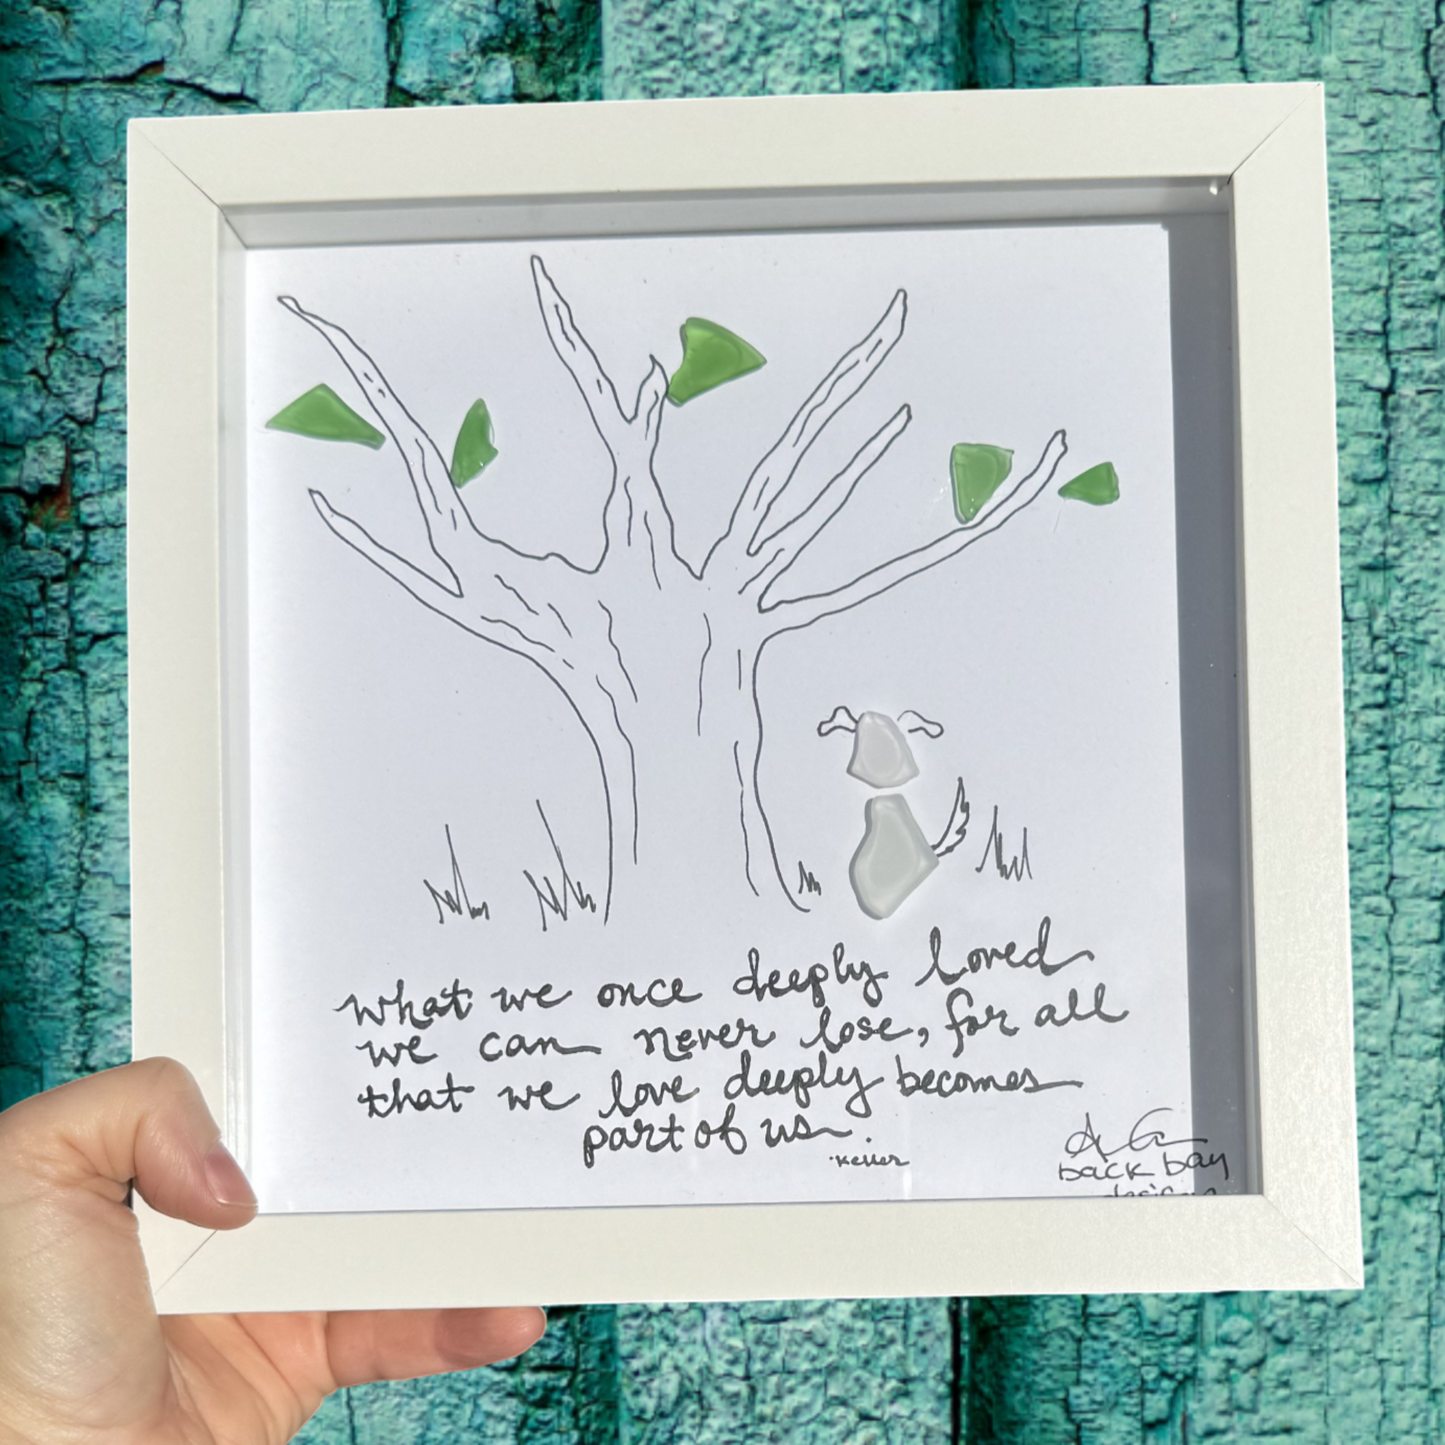 what we once deeply loved
we can never lose, for all
that we love deeply becomes
part of us.
·Keller
back bay
designs